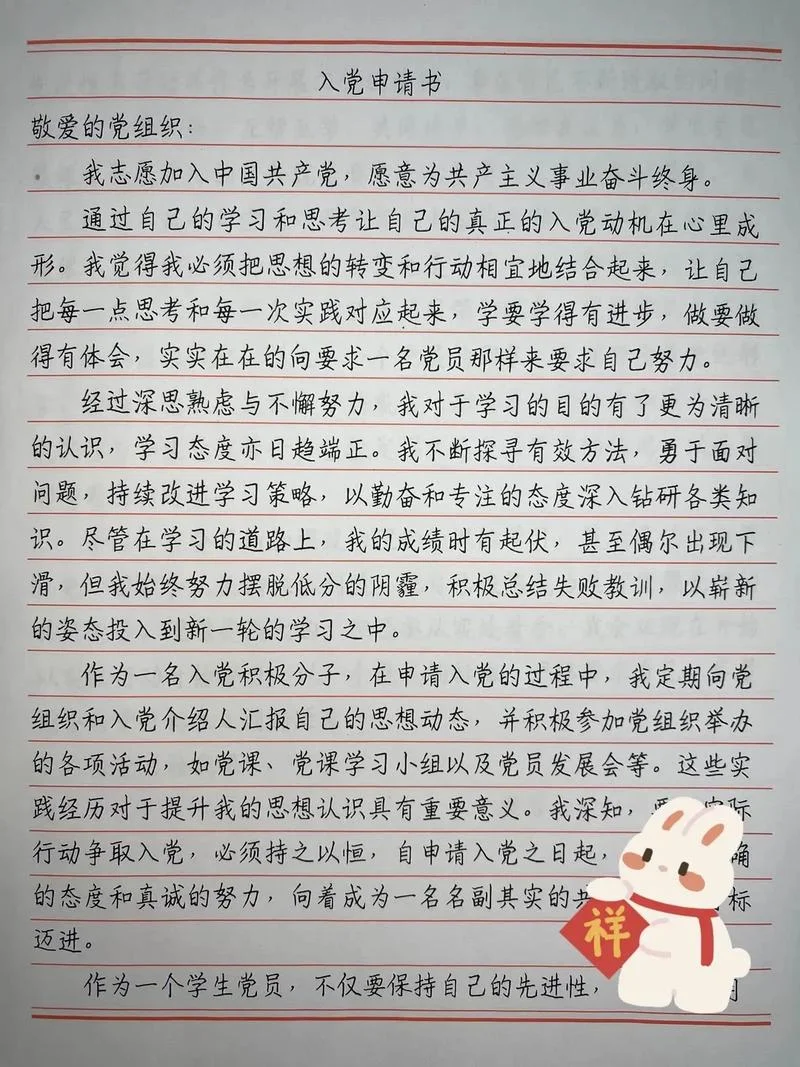 入党申请书
敬爱的党组织：
我志愿加入中国共产党，愿意为共产主义事业奋斗终身。
通过自己的学习和思考让自己的真正的入党动机在心里成
形。我觉得我必须把思想的转变和行动相宜地结合起来，让自己
把每一点思考和每一次实践对应起来，学要学得有进步，做要做
得有体会，实实在在的向要求一名党员那样来要求自己努力。
经过深思熟虑与不懈努力，我对于学习的目的有了更为清晰
的认识，学习态度亦日趋端正。我不断探寻有效方法，勇于面对
问题，持续改进学习策略，以勤奋和专注的态度深入钻研各类知
识。尽管在学习的道路上，我的成绩时有起伏，甚至偶尔出现下
滑，但我始终努力摆脱低分的阴霾，积极总结失败教训，以崭新
的姿态投入到新一轮的学习之中。
作为一名入党积极分子，在申请入党的过程中，我定期向党
组织和入党介绍人汇报自己的思想动态，并积极参加党组织举办
的各项活动，如党课、党课学习小组以及党员发展会等。这些实
践经历对于提升我的思想认识具有重要意义。我深知，要 实际
行动争取入党，必须持之以恒，自申请入党之日起， 确
的态度和真诚的努力，向着成为一名名副其实的共 标
迈进。
作为一个学生党员，不仅要保持自己的先进性，
祥